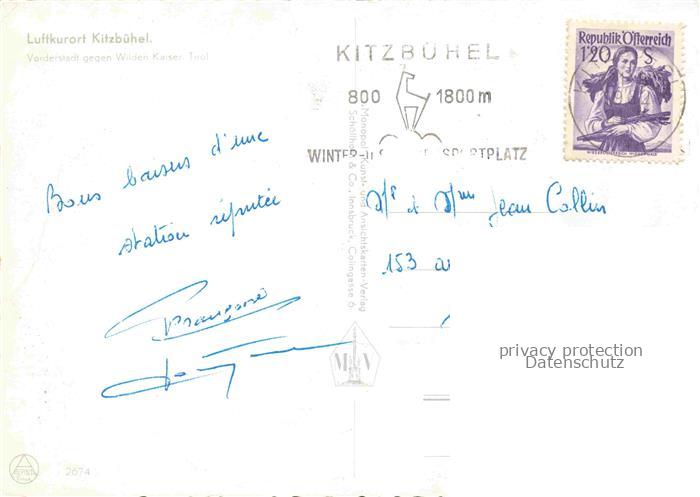 Luftkurort Kitzbühel.
Vorderstadt gegen Wilden Kaiser. Tirol
KITZBÜHEL
800 1800 m
WINTER- SPORTPLATZ
Republik Österreich
1'20 S
Bons baisers d'une
station réputée
Françoise
Mr & Mme Jean Collin
153 av
Monopol Kunst- und Ansichtskarten-Verlag
Schöllhorn & Co., Innsbruck, Colingasse 6
M V
privacy protection
Datenschutz
2674